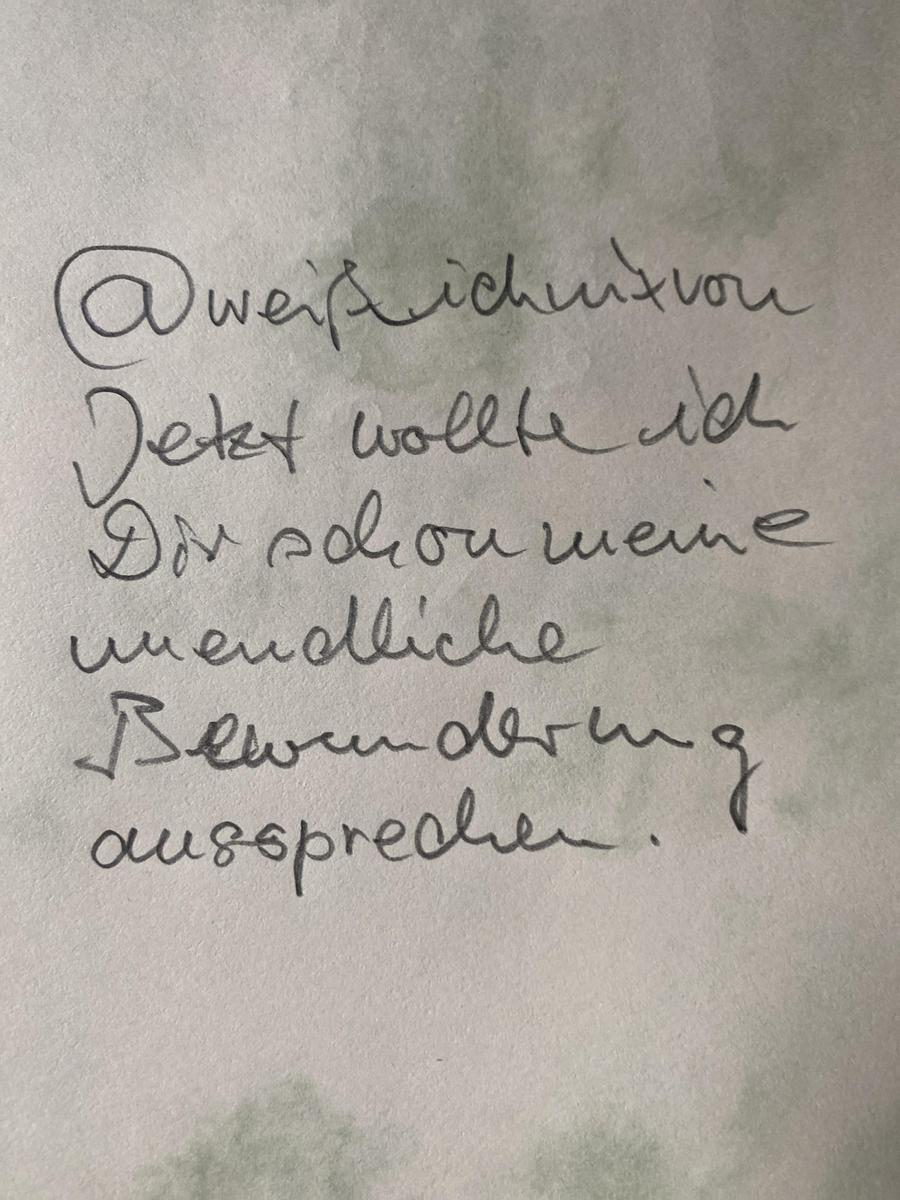 @weißichnixvon
Jetzt wollte ich
Dir schon meine
unendliche
Bewunderung
aussprechen.